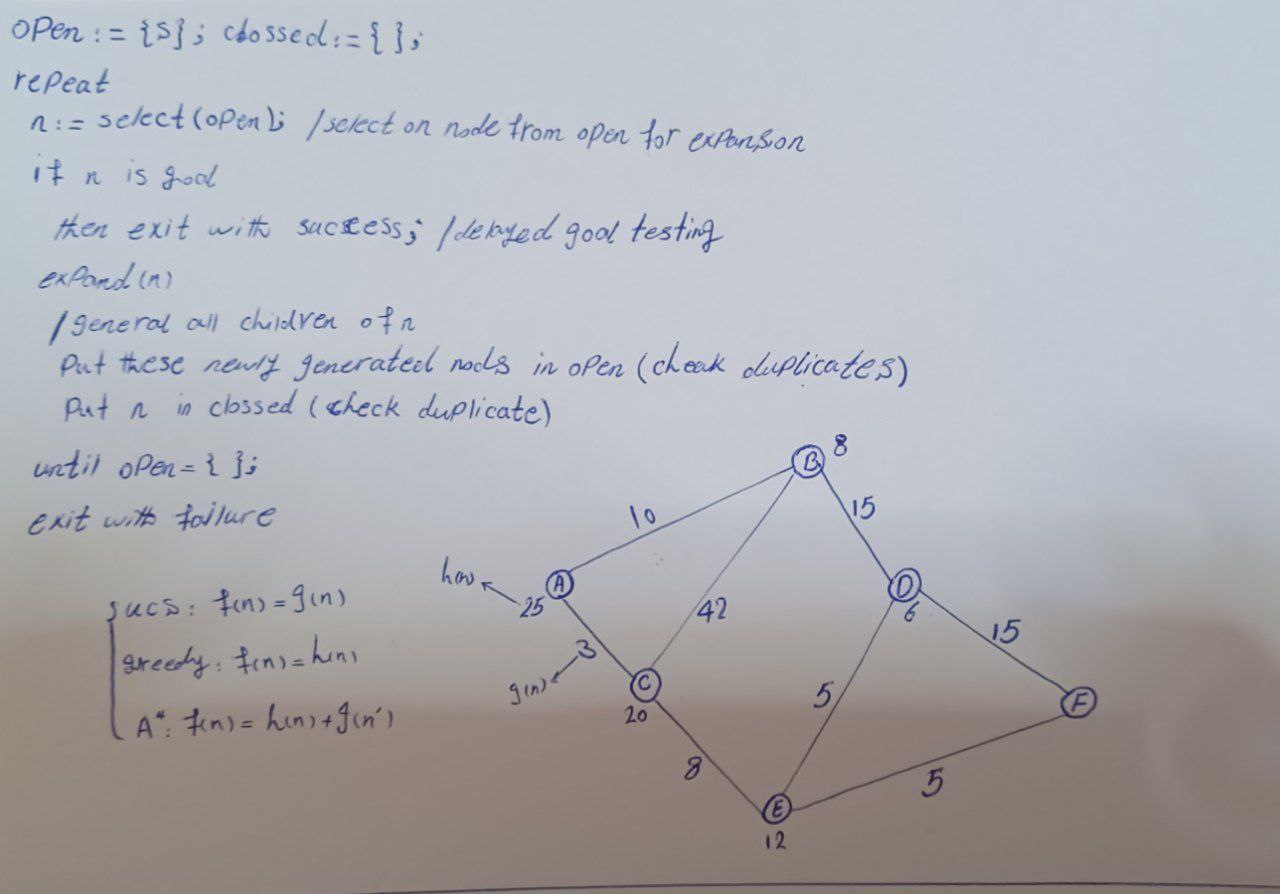 open := {S}; clossed := { };
repeat
n := select(open); /select on node from open for expansion
if n is goal
then exit with success; /delayed goal testing
expand(n)
/general all children of n
Put these newly generated nods in open (cheak duplicates)
Put n in clossed (check duplicate)
until open = { };
exit with failure
sucs: f(n) = g(n)
greedy: f(n) = h(n)
A*: f(n) = h(n) + g(n')
B 8
10
15
h(n)
A
25
42
D
6
15
3
g(n)
C
20
5
F
8
5
E
12